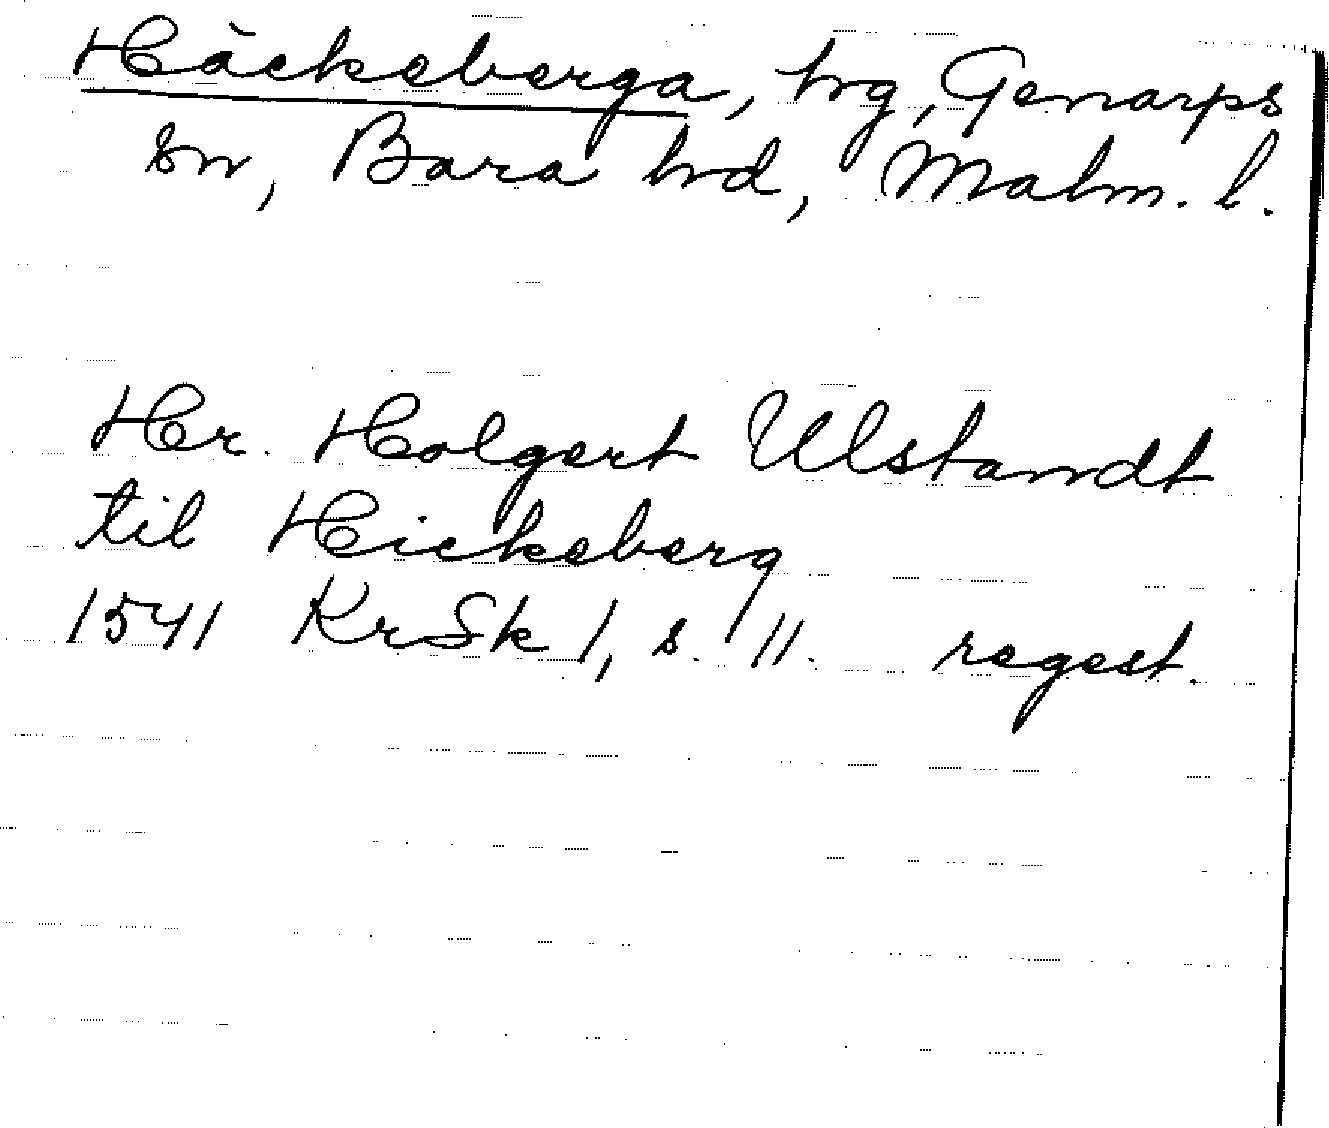 Häckeberga, hrg, Genarps
sn, Bara hrd, Malm. l.
Hr. Holgert Ulstandt
til Hickeberg
1541 KrSk 1, s. 11. regest.